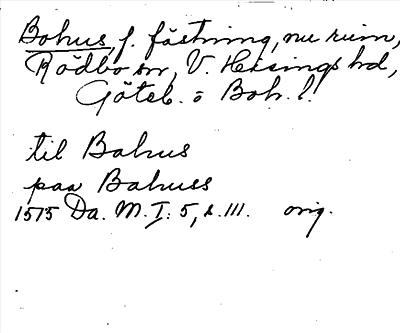 Bohus, f. fästning, nu ruin,
Rödbo sn, V. Hisings hd,
Göteb. o Boh. l.
til Bahus
paa Bahuss
1515 Da. M. I: 5, s. 111. orig.